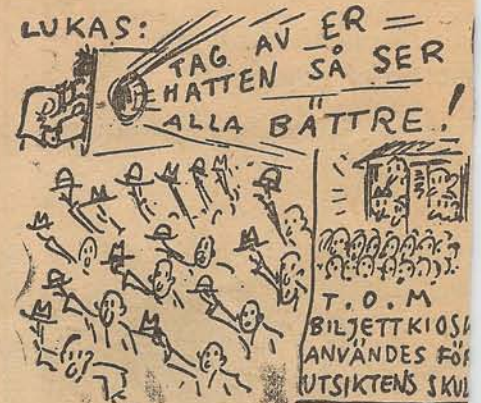 LUKAS:
TAG AV ER
HATTEN SÅ SER
ALLA BÄTTRE!
T.O.M
BILJETTKIOSK
ANVÄNDES FÖR
UTSIKTENS SKUL